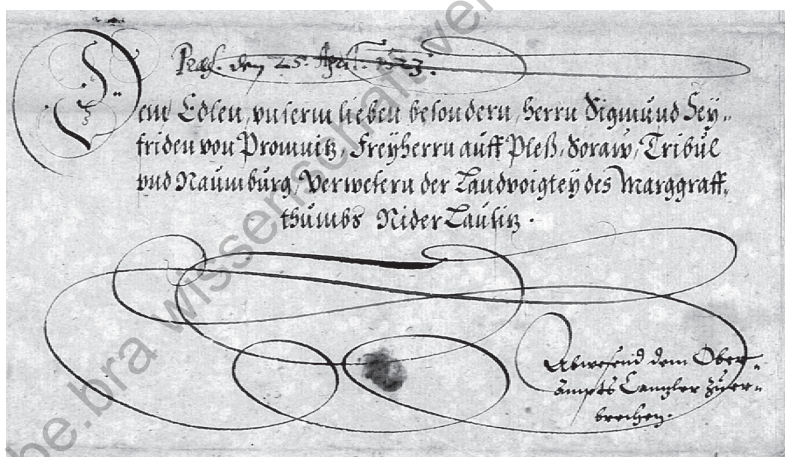 Præs. den 25. April. 1653.
Dem Edlen, vnserm lieben besondern, Herrn Sigmund Sey-
friden von Promnitz, Freyherrn auff Pleß, Soraw, Tribül
vnd Naumburg, Verwesern der Landvoigtey des Marggraff-
thumbs Nider Lausitz.
Abwesend dem Ober-
ampts Cantzler zu er-
brechen.
be.bra wissenschaft ver